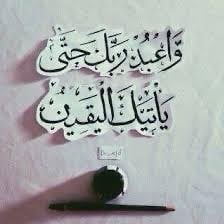 وَاعْبُدْ رَبَّكَ حَتَّىٰ
يَأْتِيَكَ الْيَقِينُ